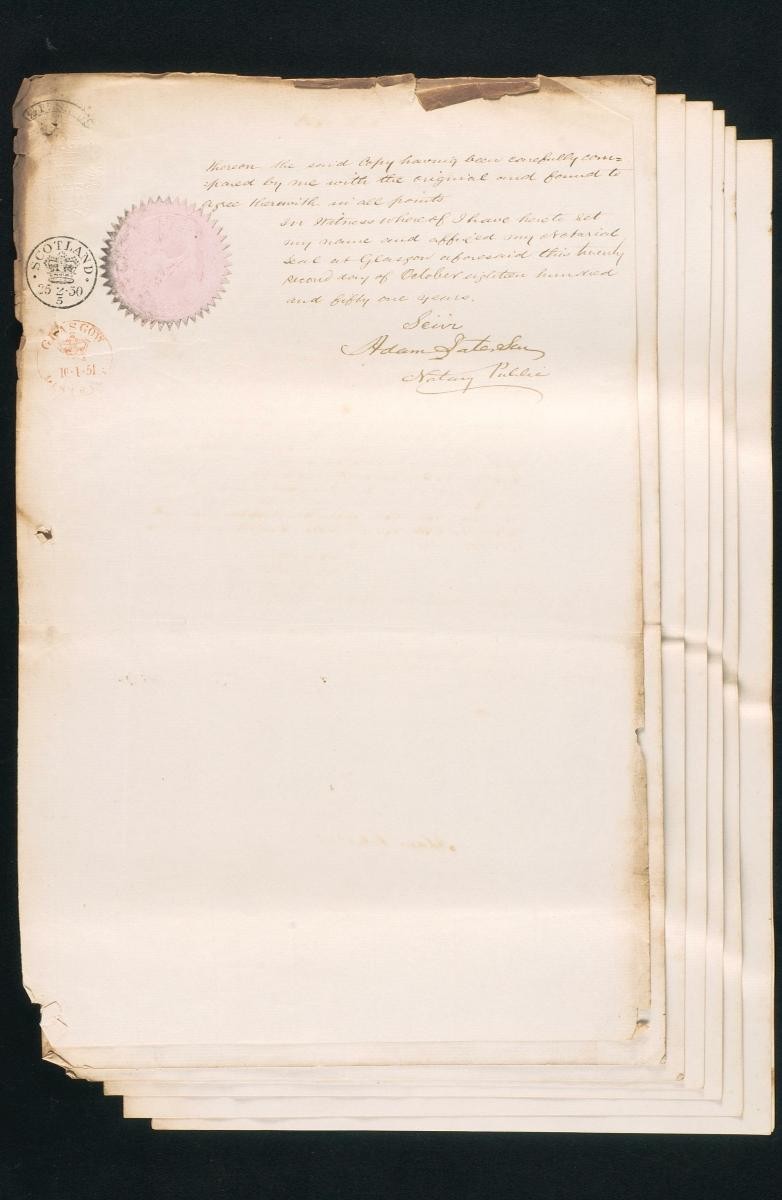 thereon the said Copy having been carefully com=
=pared by me with the original and found to
agree therewith in all points
In Witness whereof I have hereto set
my name and affixed my Notarial
Seal at Glasgow aforesaid this twenty
second day of October eighteen hundred
and fifty one years.
Adam Paterson
Notary Public
SCOTLAND
25·2·50
5
GLASGOW
10·1·51